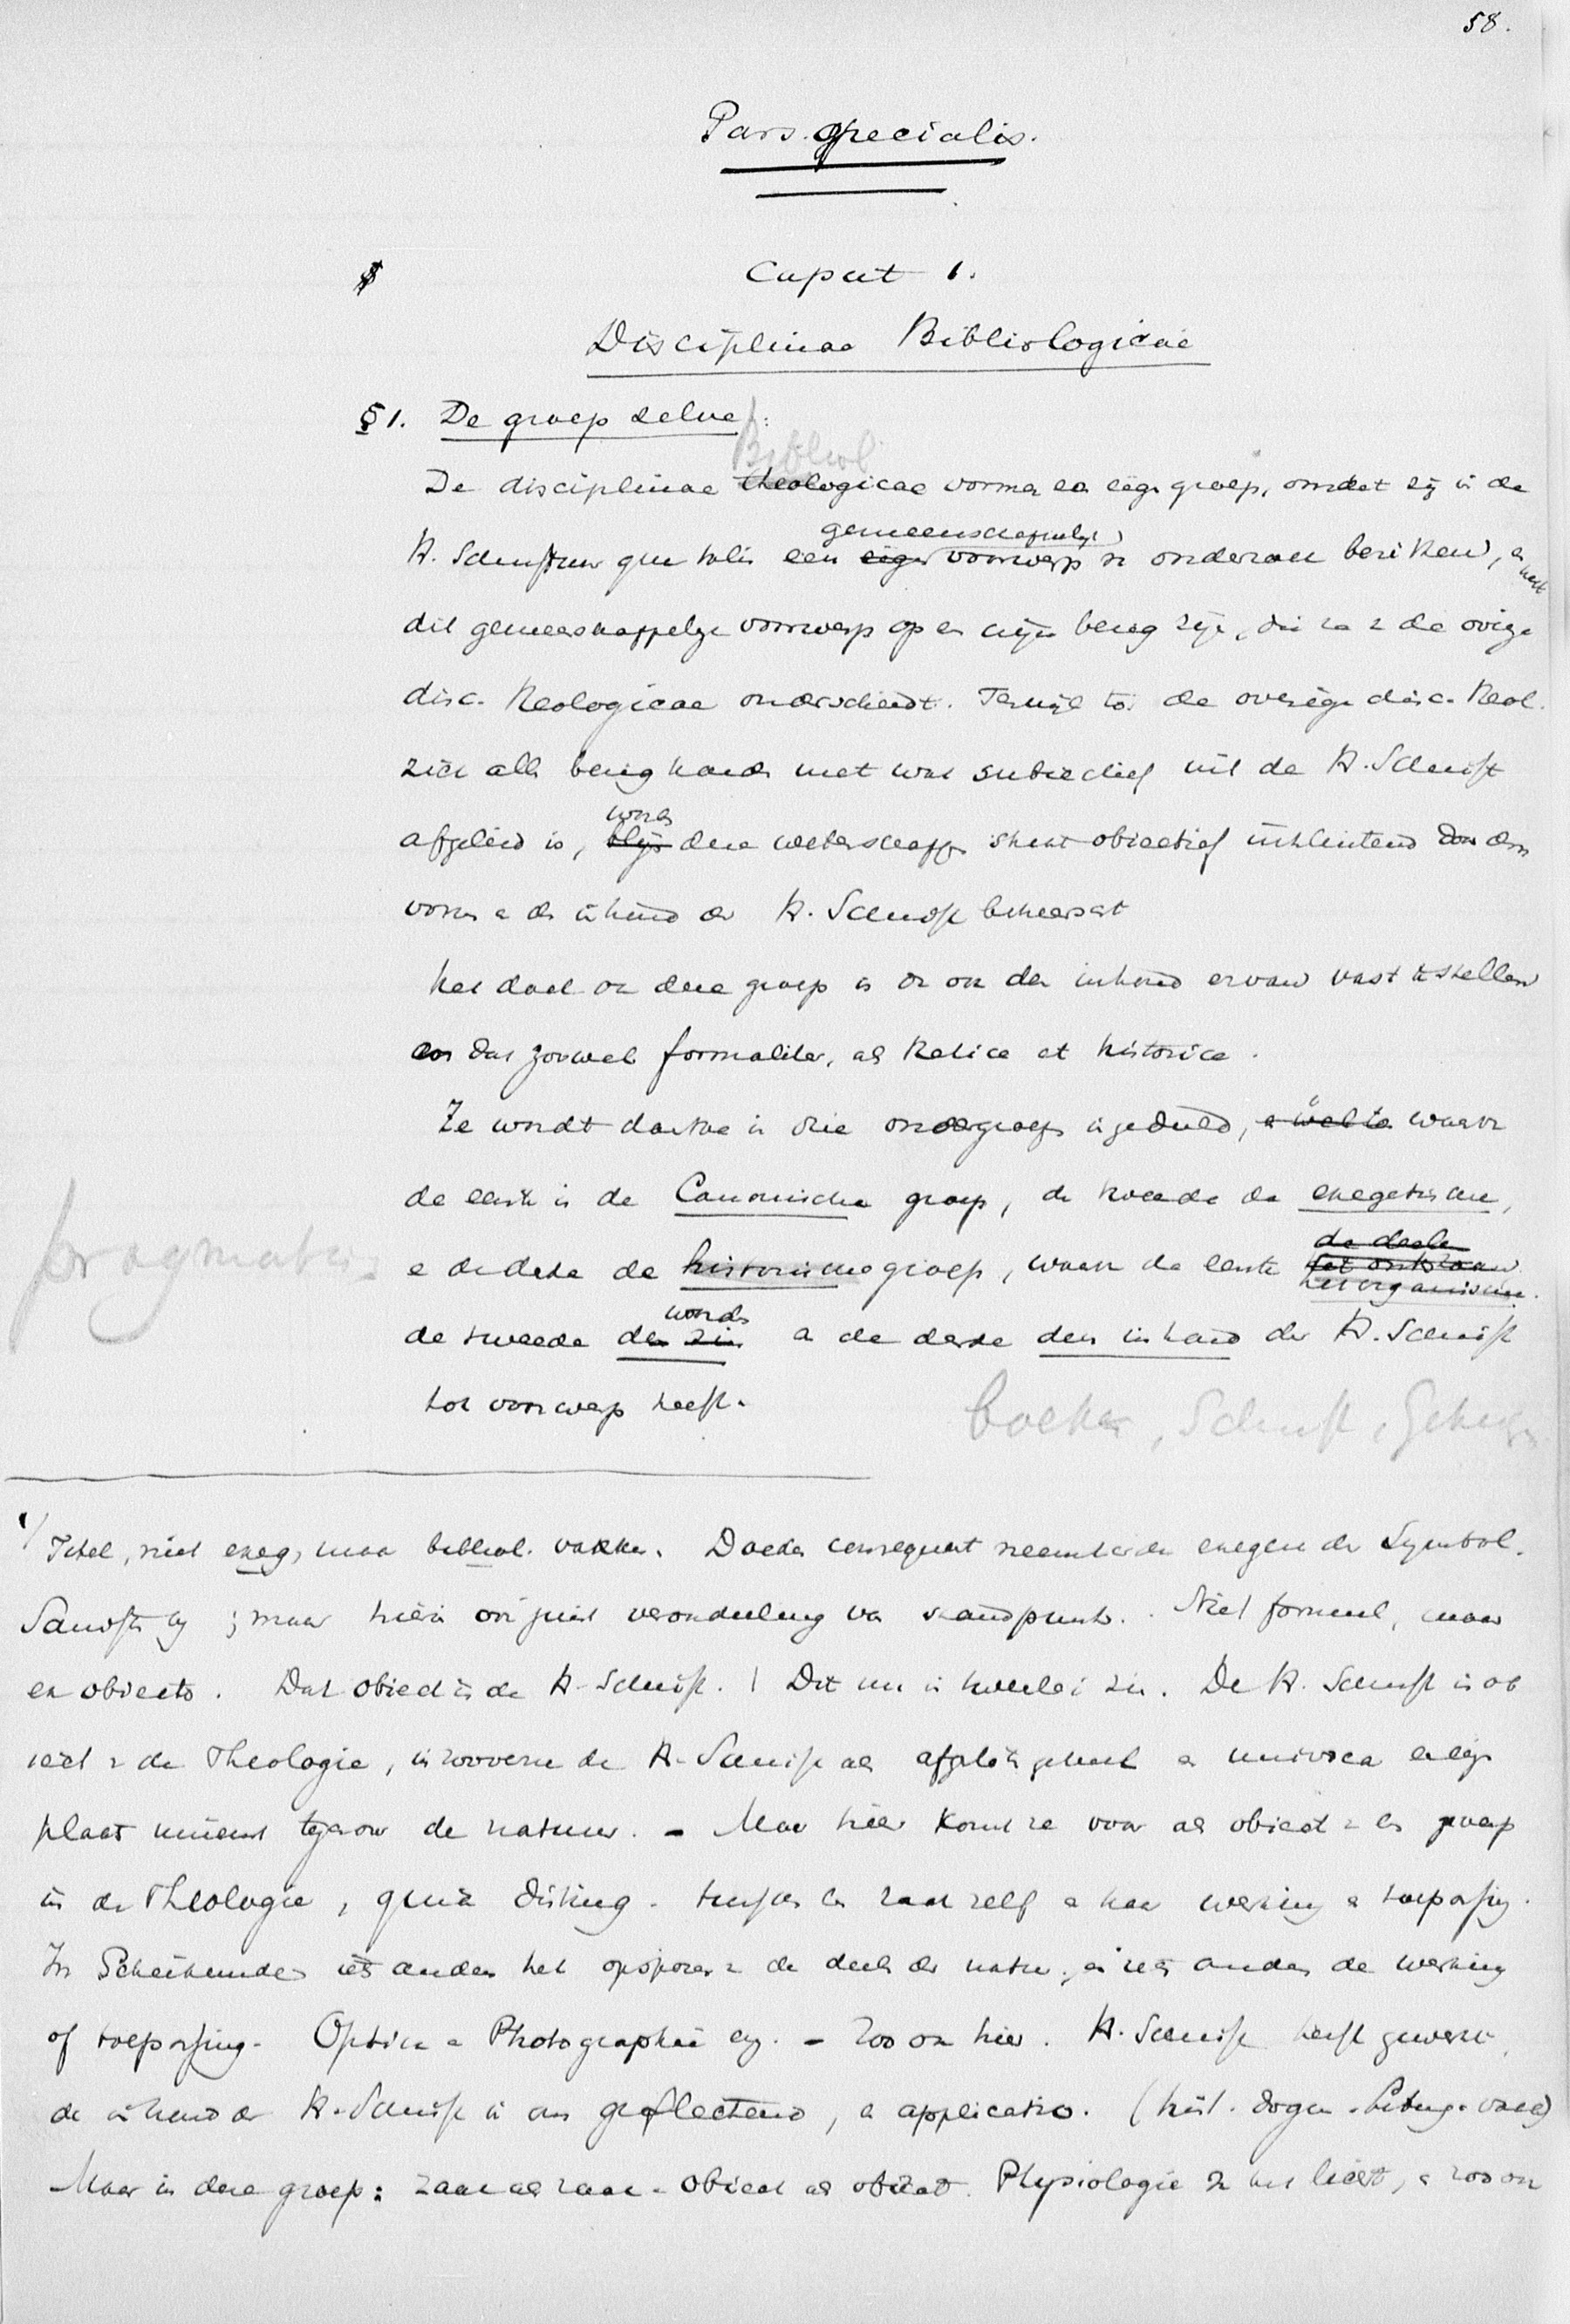 58.
Pars. specialis.
§ Caput 1.
Disciplinae Bibliologicae
§ 1. De groep zelve:
Bibliol
De disciplinae theologicae vormen een eigen groep, omdat zij in de
gemeenschappelijk
H. Schriftuur qua talis een eigen voorwerp van onderzoek bezitten, en
dit gemeenschappelijke voorwerp op een wijze bezig zijn, die ze van de overige
disc. theologicae onderscheidt. Terwijl toch de overige disc. theol.
zich alle bezig houden met wat subiectief uit de H. Schrift
wordt
afgeleid is, blijft deze wetenschappen objectief uitsluitend door den
vorm en den inhoud der H. Schrift beheerscht
Het doel van deze groep is om den inhoud ervan vast te stellen
en dat zoowel formaliter, als et historice.
Ze wordt daartoe in drie ondergroepen ingedeeld, waarvan
de eerste is de Canonische groep, de tweede de exegetische,
pragmatische
en de derde de historische groep, waarvan de eerste het ontstaan
de deele
het organische
woorden
de tweede den zin en de derde den inhoud der H. Schrift
tot voorwerp heeft.
boeken, Schrift,
1/ Titel, niet exeg, maar bibliol. vakken. Doedes consequent neemt de exegese der Symbol.
Schriften bij; maar hierin juist veroordeeling van standpunt. Niet formeel, maar
ex obiecto. Dat obiect is de H. Schrift. Dit nu in tweeërlei zin. De H. Schrift is ob
iect van de Theologie, in zooverre de H. Schrift als geheel en eenige
plaats inneemt tegenover de natuur. - Maar hier komt ze voor als obiect van een groep
in de Theologie, quia disting. tusschen een zaak zelf en haar werking en toepassing.
In Scheikunde iets anders het opsporen van de deelen der natuur, en iets anders de werking
of toepassing. Optica en Photographie bij. - Zoo ook hier. H. Schrift heeft gewerkt,
de inhoud der H. Schrift is in ons gereflecteerd, en applicatio. (hist. dogm.
Maar in deze groep: zaak als zaak. Obiect als obiect. Physiologie van het licht, en zoo ook